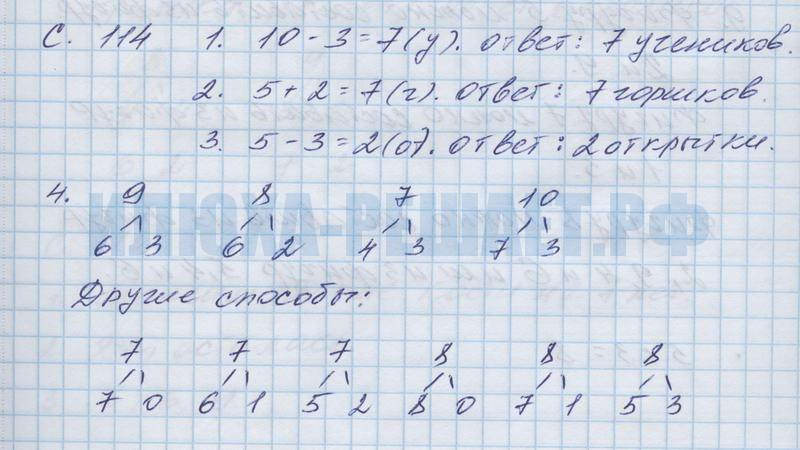 С. 114 1. 10 - 3 = 7 (у). ответ: 7 учеников.
2. 5 + 2 = 7 (г). ответ: 7 горшков.
3. 5 - 3 = 2 (от). ответ: 2 открытки.
4. 9 8 7 10
6 3 6 2 4 3 7 3
ИЛЮХА-РЕШАЕТ.РФ
Другие способы:
7 7 7 8 8 8
7 0 6 1 5 2 8 0 7 1 5 3